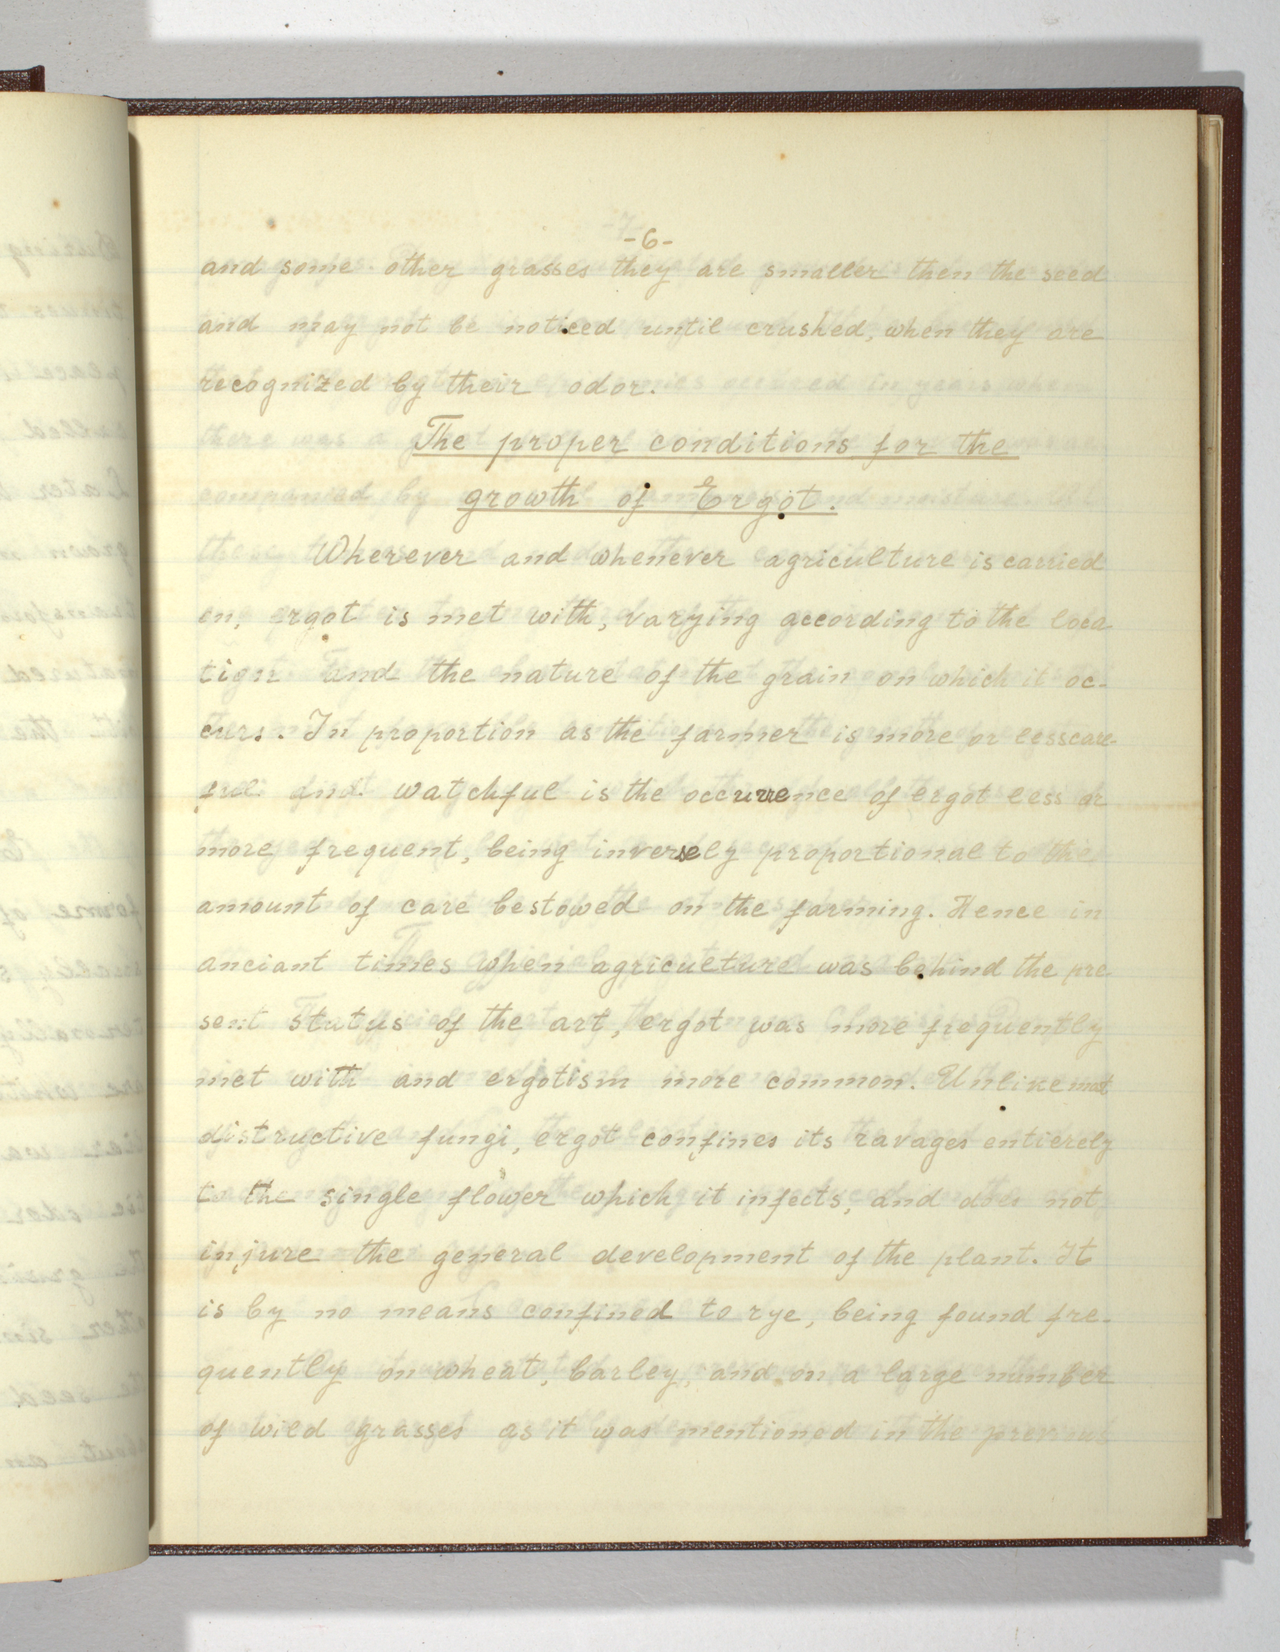 -6-
and some other grasses they are smaller then the seed
and may not be noticed until crushed, when they are
recognized by their odor.
The proper conditions for the
growth of Ergot.
Wherever and whenever agriculture is carried
on, ergot is met with, varying according to the loca
tion and the nature of the grain on which it oc-
curs. In proportion as the farmer is more or less care-
ful and watchful is the occurrence of ergot less or
more frequent, being inversely proportional to the
amount of care bestowed on the farming. Hence in
anciant times when agriculture was behind the pre
sent status of the art, ergot was more frequently
met with and ergotism more common. Unlike most
distructive fungi, ergot confines its ravages entierely
to the single flower which it infects, and does not
injure the general development of the plant. It
is by no means confined to rye, being found fre-
quently on wheat, barley, and on a large number
of wild grasses as it was mentioned in the previous